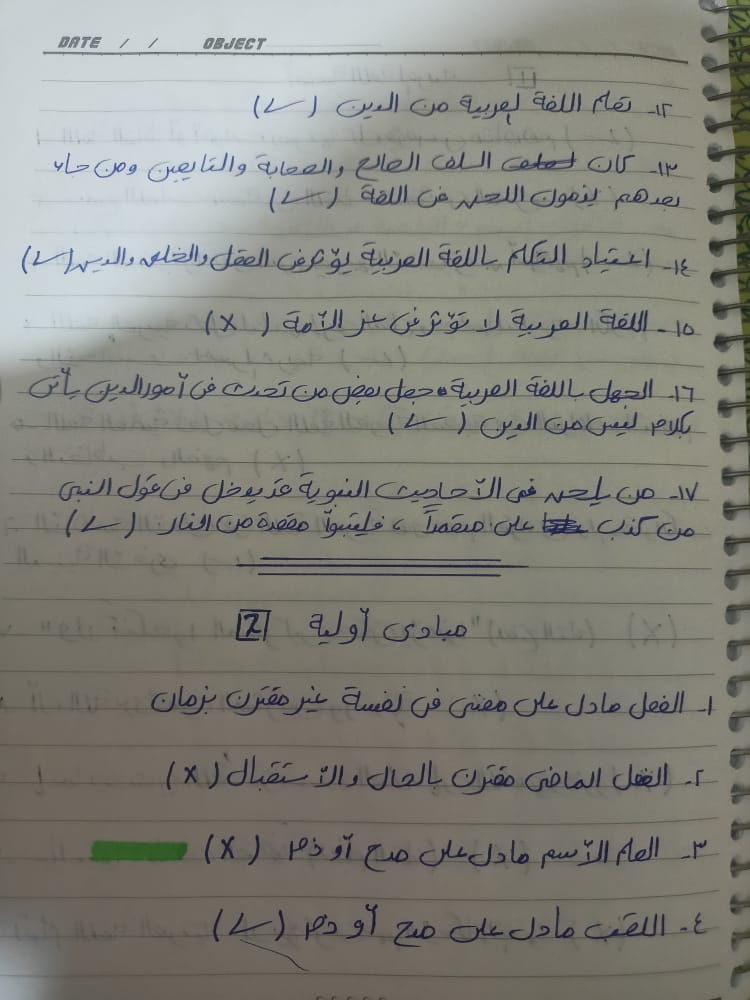 DATE / / OBJECT
١٢- تعلم اللغة العربية من الدين (✓)
١٣- كان السلف الصالح والصحابة والتابعين ومن جاء
بعدهم يذمون اللحن في اللغة (✓)
١٤- اعتياد التكلم باللغة العربية يؤثر في العقل والخلق والدين (✓)
١٥- اللغة العربية لا تؤثر في عز الأمة (X)
١٦- الجهل باللغة العربية جعل بعض من تحدث في أمور الدين يأتى
بكلام ليس من الدين (✓)
١٧- من يلحن في الأحاديث النبوية قد يدخل في قول النبى
من كذب على متعمداً، فليتبوأ مقعدة من النار (✓)
مبادى أولية 2
١- الفعل مادل على معنى في نفسة غير مقترن بزمان
٢- الفعل الماضى مقترن بالحال والأستقبال (X)
٣- العلم الأسم مادل على مدح أو ذم (X)
٤- اللقب مادل على مدح أو ذم (✓)